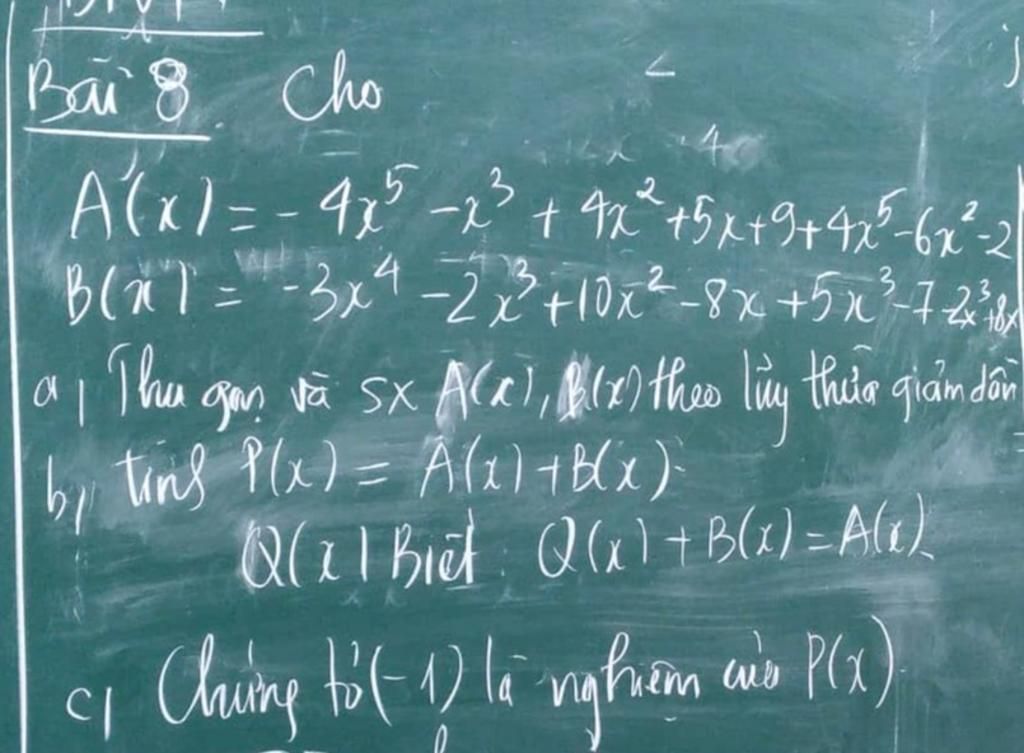 Bài 8 Cho
A(x) = - 4x⁵ - x³ + 4x² + 5x + 9 + 4x⁵ - 6x² - 2
B(x) = -3x⁴ - 2x³ + 10x² - 8x + 5x³ - 7 - 2x³ + 8x
a, Thu gọn và sx A(x), B(x) theo lũy thừa giảm dần
b, tính P(x) = A(x) + B(x)
Q(x) Biết: Q(x) + B(x) = A(x)
c, Chứng tỏ (-1) là nghiệm của P(x)